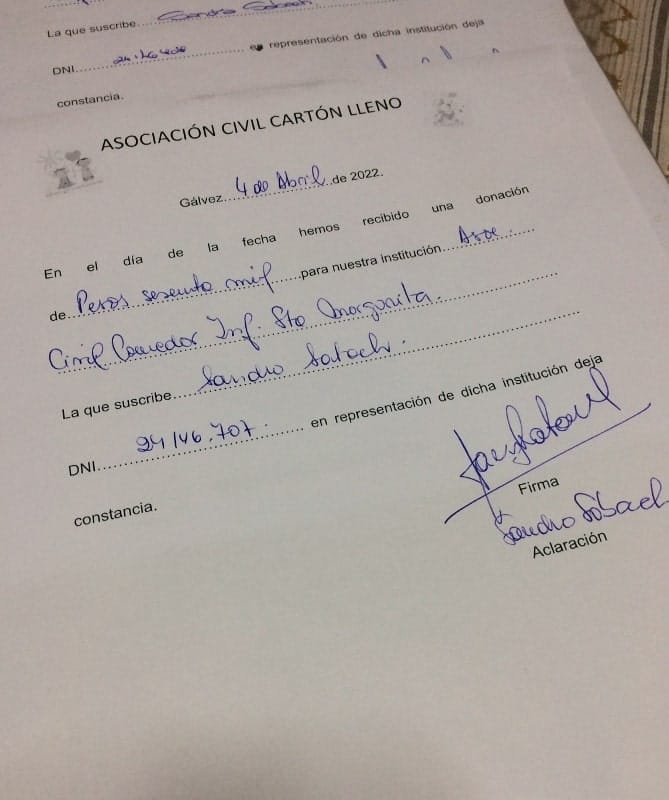 La que suscribe
DNI en representación de dicha institución deja
constancia.
ASOCIACIÓN CIVIL CARTÓN LLENO
Gálvez 4 de Abril de 2022.
En el día de la fecha hemos recibido una donación
de Pesos sesenta mil para nuestra institución Asoc.
Civil Comedor Inf. Sta Margarita.
La que suscribe Sandra
DNI 24146.707. en representación de dicha institución deja
constancia.
Firma
Sandra
Aclaración